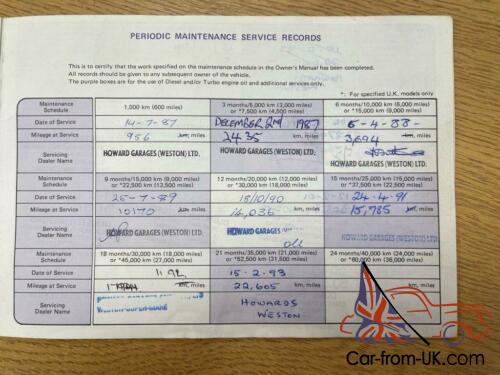 PERIODIC MAINTENANCE SERVICE RECORDS
This is to certify that the work specified on the maintenance schedule in the Owner's Manual has been completed.
All records should be given to any subsequent owner of the vehicle.
The purple boxes are for use of Diesel and/or Turbo engine oil and additional services only.
*: For specified U.K. models only
Maintenance Schedule
1,000 km (600 miles)
3 months/5,000 km (3,000 miles)
or *7,500 km (4,500 miles)
6 months/10,000 km (6,000 miles)
or *15,000 km (9,000 miles)
Date of Service
14-7-87
DECEMBER 2nd 1987
5-4-88-
Mileage at Service
956 km, miles
2435 km, miles
3,694 km, miles
Servicing Dealer Name
HOWARD GARAGES (WESTON) LTD.
HOWARD GARAGES (WESTON) LTD.
HOWARD GARAGES (WESTON) LTD.
Maintenance Schedule
9 months/15,000 km (9,000 miles)
or *22,500 km (13,500 miles)
12 months/20,000 km (12,000 miles)
or *30,000 km (18,000 miles)
15 months/25,000 km (15,000 miles)
or *37,500 km (22,500 miles)
Date of Service
25-7-89
18/10/90
24-4-91
Mileage at Service
10170 km, miles
km, miles
15,785 km, miles
Servicing Dealer Name
HOWARD GARAGES (WESTON) LTD.
HOWARD GARAGES
HOWARD GARAGES (WESTON) LTD.
Maintenance Schedule
18 months/30,000 km (18,000 miles)
or *45,000 km (27,000 miles)
21 months/35,000 km (21,000 miles)
or *52,500 km (31,500 miles)
24 months/40,000 km (24,000 miles)
or *60,000 km (36,000 miles)
Date of Service
11.92
15.2.93
Mileage at Service
km, miles
22,605 km, miles
km, miles
Servicing Dealer Name
WESTON-SUPER-MARE
HOWARDS
WESTON
Car-from-UK.com